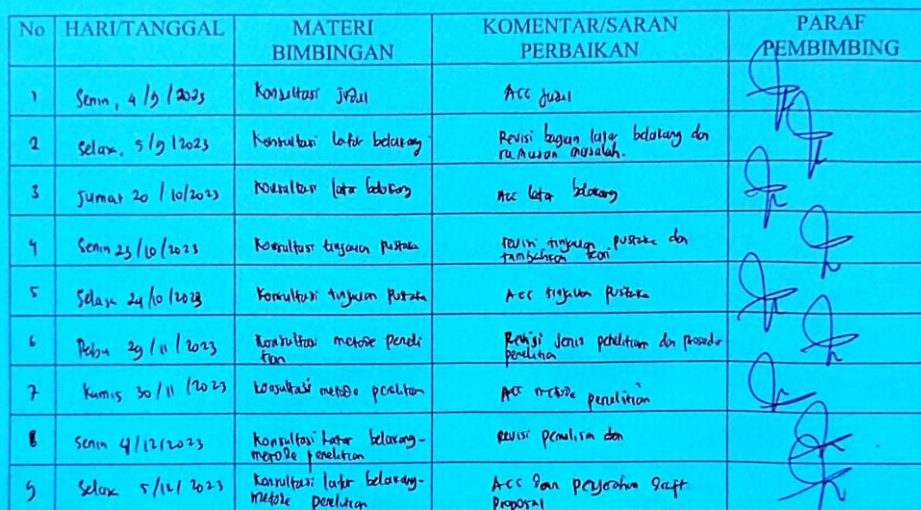 No HARI/TANGGAL MATERI BIMBINGAN KOMENTAR/SARAN PERBAIKAN PARAF PEMBIMBING
1 Senin, 4/9/2023 Konsultasi judul Acc judul
2 Selasa, 5/9/2023 Konsultasi latar belakang Revisi bagian latar belakang dan
rumusan masalah.
3 Jumat 20/10/2023 Konsultasi latar belakang Acc latar belakang
4 Senin 23/10/2023 Konsultasi tinjauan pustaka revisi tinjauan pustaka dan
tambahkan teori
5 Selasa 24/10/2023 Konsultasi tinjauan pustaka Acc tinjauan pustaka
6 Rabu 29/11/2023 Konsultasi metode peneli Revisi jenis penelitian dan prosedur
tian penelitian
7 Kamis 30/11/2023 Konsultasi metode penelitian Acc metode penelitian
8 Senin 4/12/2023 Konsultasi latar belakang- revisi penulisan dan
metode penelitian
9 Selasa 5/12/2023 Konsultasi latar belakang- Acc dan penyerahan draft
metode penelitian proposal